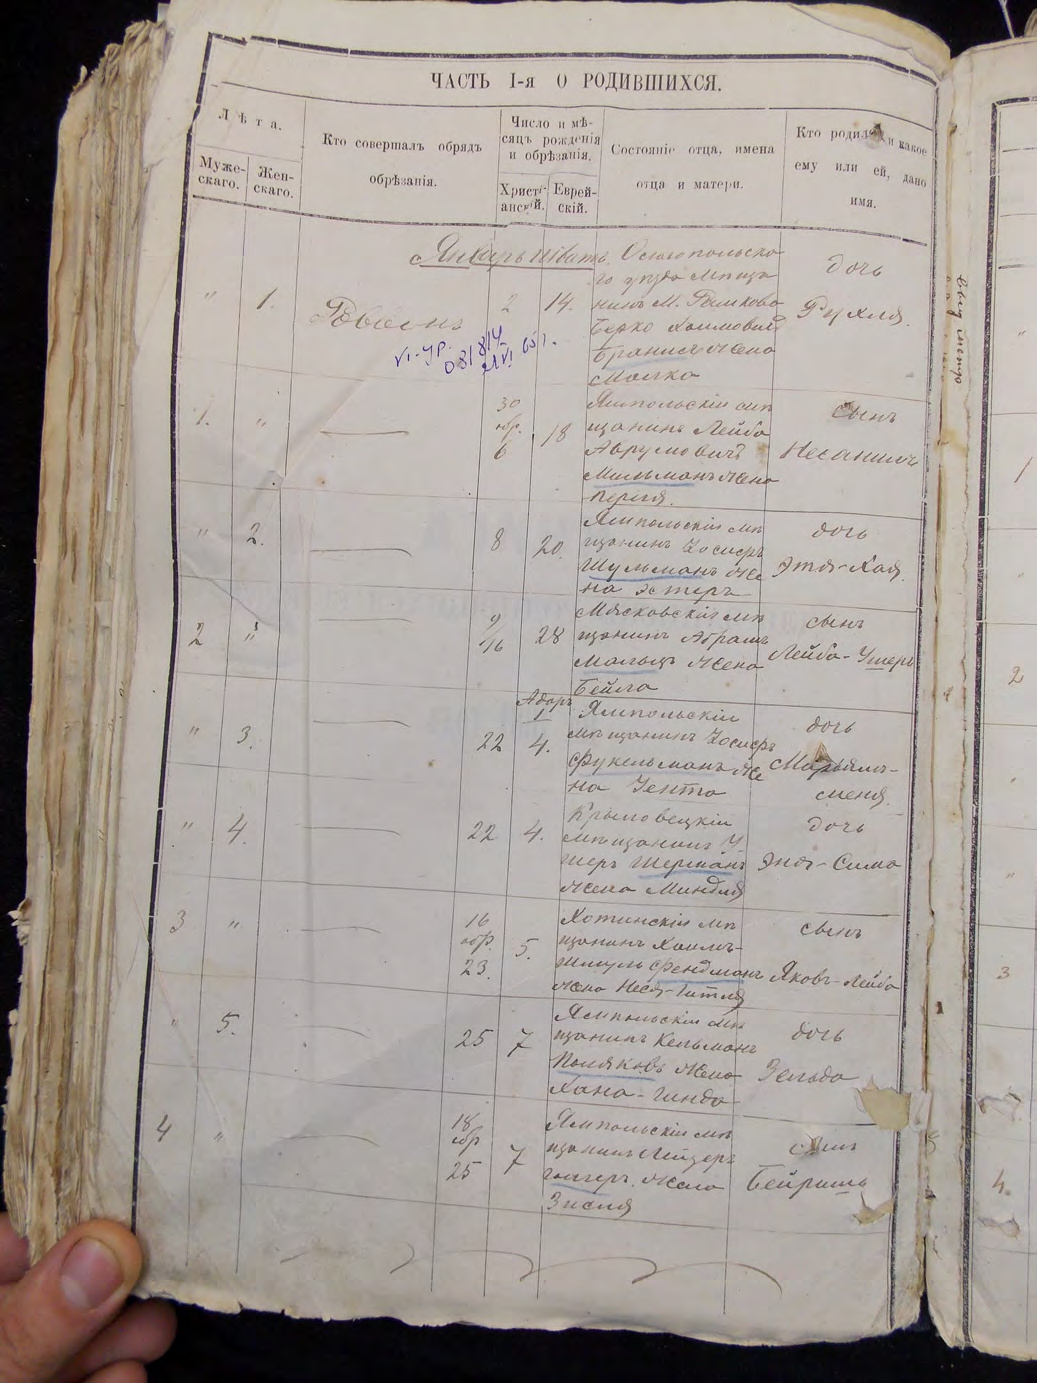 ЧАСТЬ I-я О РОДИВШИХСЯ.
Лѣта.
Муже-
скаго.
Жен-
скаго.
Кто совершалъ обрядъ
обрѣзанія.
Число и мѣ-
сяцъ рожденія
и обрѣзанія.
Христі-
анскій.
Еврей-
скій.
Состояніе отца, имена
отца и матери.
Кто родился и какое
ему или ей, дано
имя.
Январь Шватъ
" 1. 2 14.
го уѣзда мѣща
нинъ М.
Берко Хаимовичъ
жена
Малка
дочь
Рухля.
1. "
30
обр.
6
18
Ямпольскій мѣ
щанинъ Лейба
Аврумовичъ
Мильманъ жена
Перля.
сынъ
" 2. 8 20.
Ямпольскій мѣ
щанинъ Іосифъ
Шульманъ же
на Эстеръ
дочь
Этя-Хая.
2 "
9
16
28
Мясковскій мѣ
щанинъ Абрамъ
Мальцъ жена
Бейла
сынъ
Лейба-Ушеръ
Адаръ
1
" 3. 22 4.
Ямпольскій
мѣщанинъ Іосифъ
Фукельманъ же
на Іента
дочь
Марьямъ-
" 4. 22 4.
мѣщанинъ У
шеръ Шерманъ
жена Миндля
дочь
Этя-Сима
3 "
16
обр.
23.
5.
Хотинскій мѣ
щанинъ Хаимъ-
Шмуль Фендманъ
жена Неся-Гитля
сынъ
Яковъ-Лейба
" 5. 25 7
Ямпольскій мѣ
щанинъ Кельманъ
Поляковъ жена
Хана-Гинда
дочь
Зельда
4 "
18
обр
25
7
Ямпольскій мѣ
щанинъ Лейзеръ
жена
Зисля
сынъ
Бейришъ
1
2
3
4.